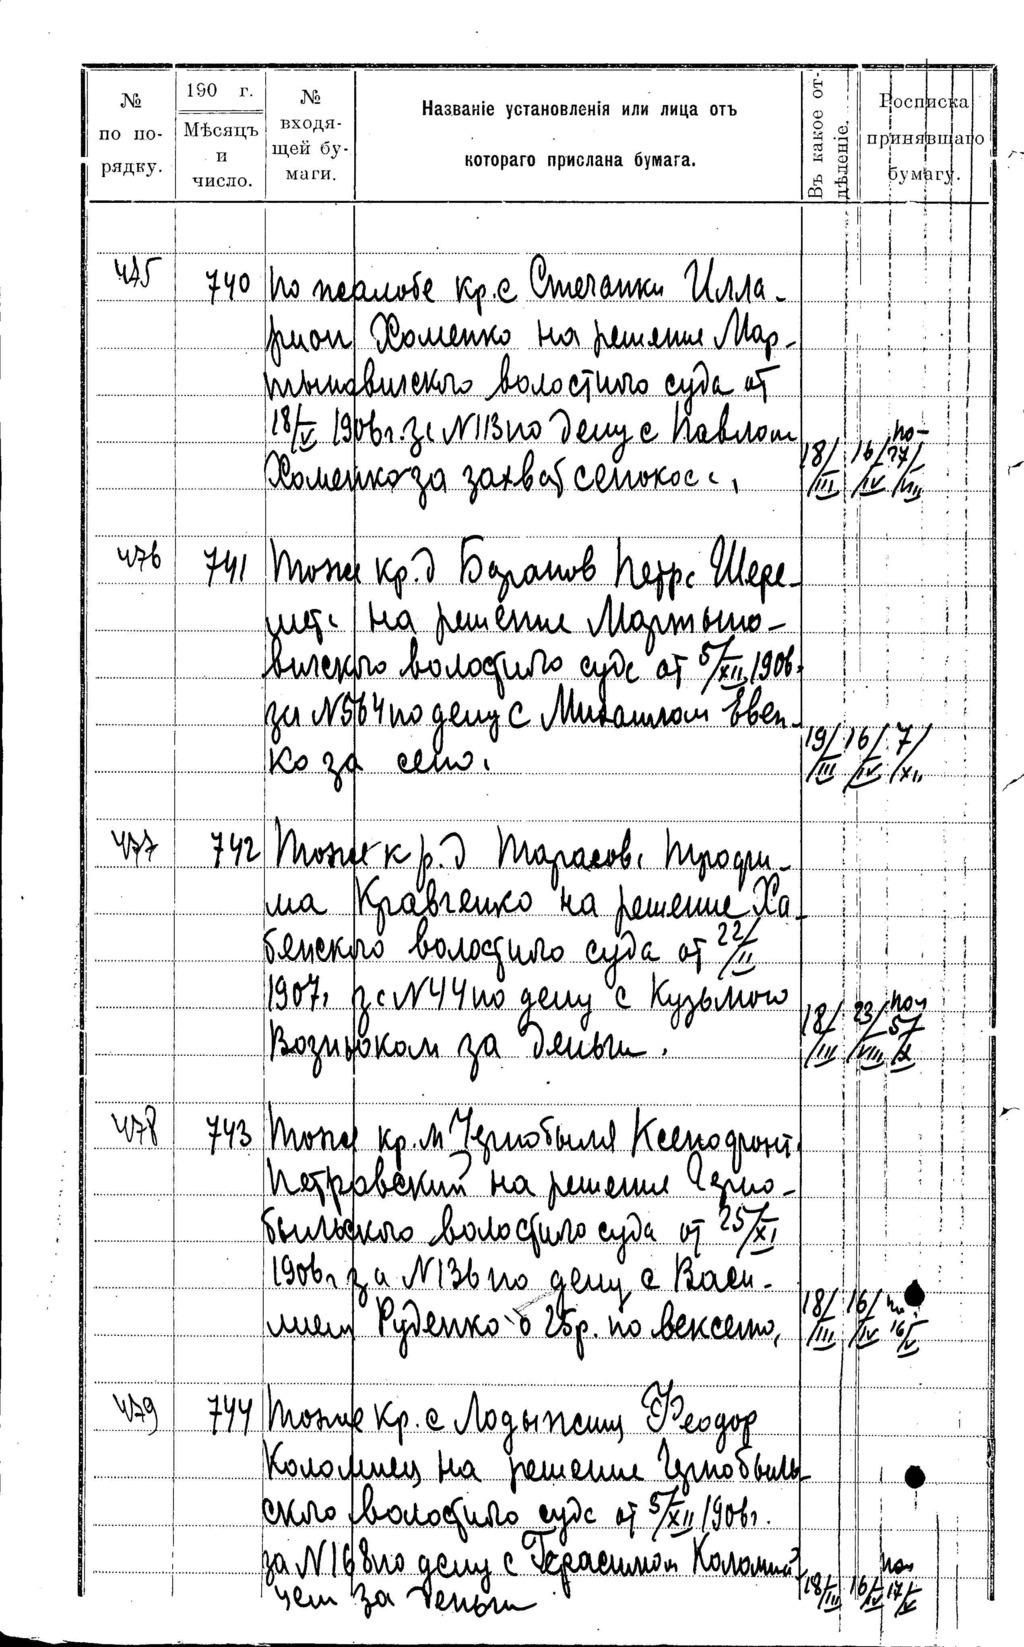 № по по-рядку.
190 г.
Мѣсяцъ и число.
№ входя-щей бу-маги.
Названіе установленія или лица отъ
котораго прислана бумага.
Въ какое от-дѣленіе.
Росписка принявшаго бумагу.
475 740 По жалобе кр. с Стечанки Илла-
рион Хоменко на решение Мар-
тыновичского волостного суда от
18/V 1906 г. за N 113 по делу с Павлом
Хоменко за захват сенокоса,
18/III 16/IV 27/VII
476 741 Тоже кр. д Баранов Петра Шере-
мета на решение Мартыно-
вичского волостного суда от 5/XII 1906
за N 564 по делу с Михаилом Евен-
ко за сено.
19/III 16/IV 7/XII
477 742 Тоже кр. д Тарасова Трофи-
ма Кравченко на решение Ха-
бенского волостного суда от 22/II
1907 за N 44 по делу с Кузьмою
Вознюком за деньги.
18/III 23/VIII 5/X
478 743 Тоже кр. м Чернобыля Ксенофонт
Петровский на решение Черно-
быльского волостного суда от 25/XI
1906 г за N 136 по делу с Васи-
лием Руденко о 25 р. по векселю,
18/III 16/IV 16/V
479 744 Тоже кр. с Ладыжичи Феодор
Коломиец на решение Чернобыль-
ского волостного суда от 5/XII 1906 г.
за N 168 по делу с Герасимом Коломий-
чем за деньги
18/III 16/IV 17/V